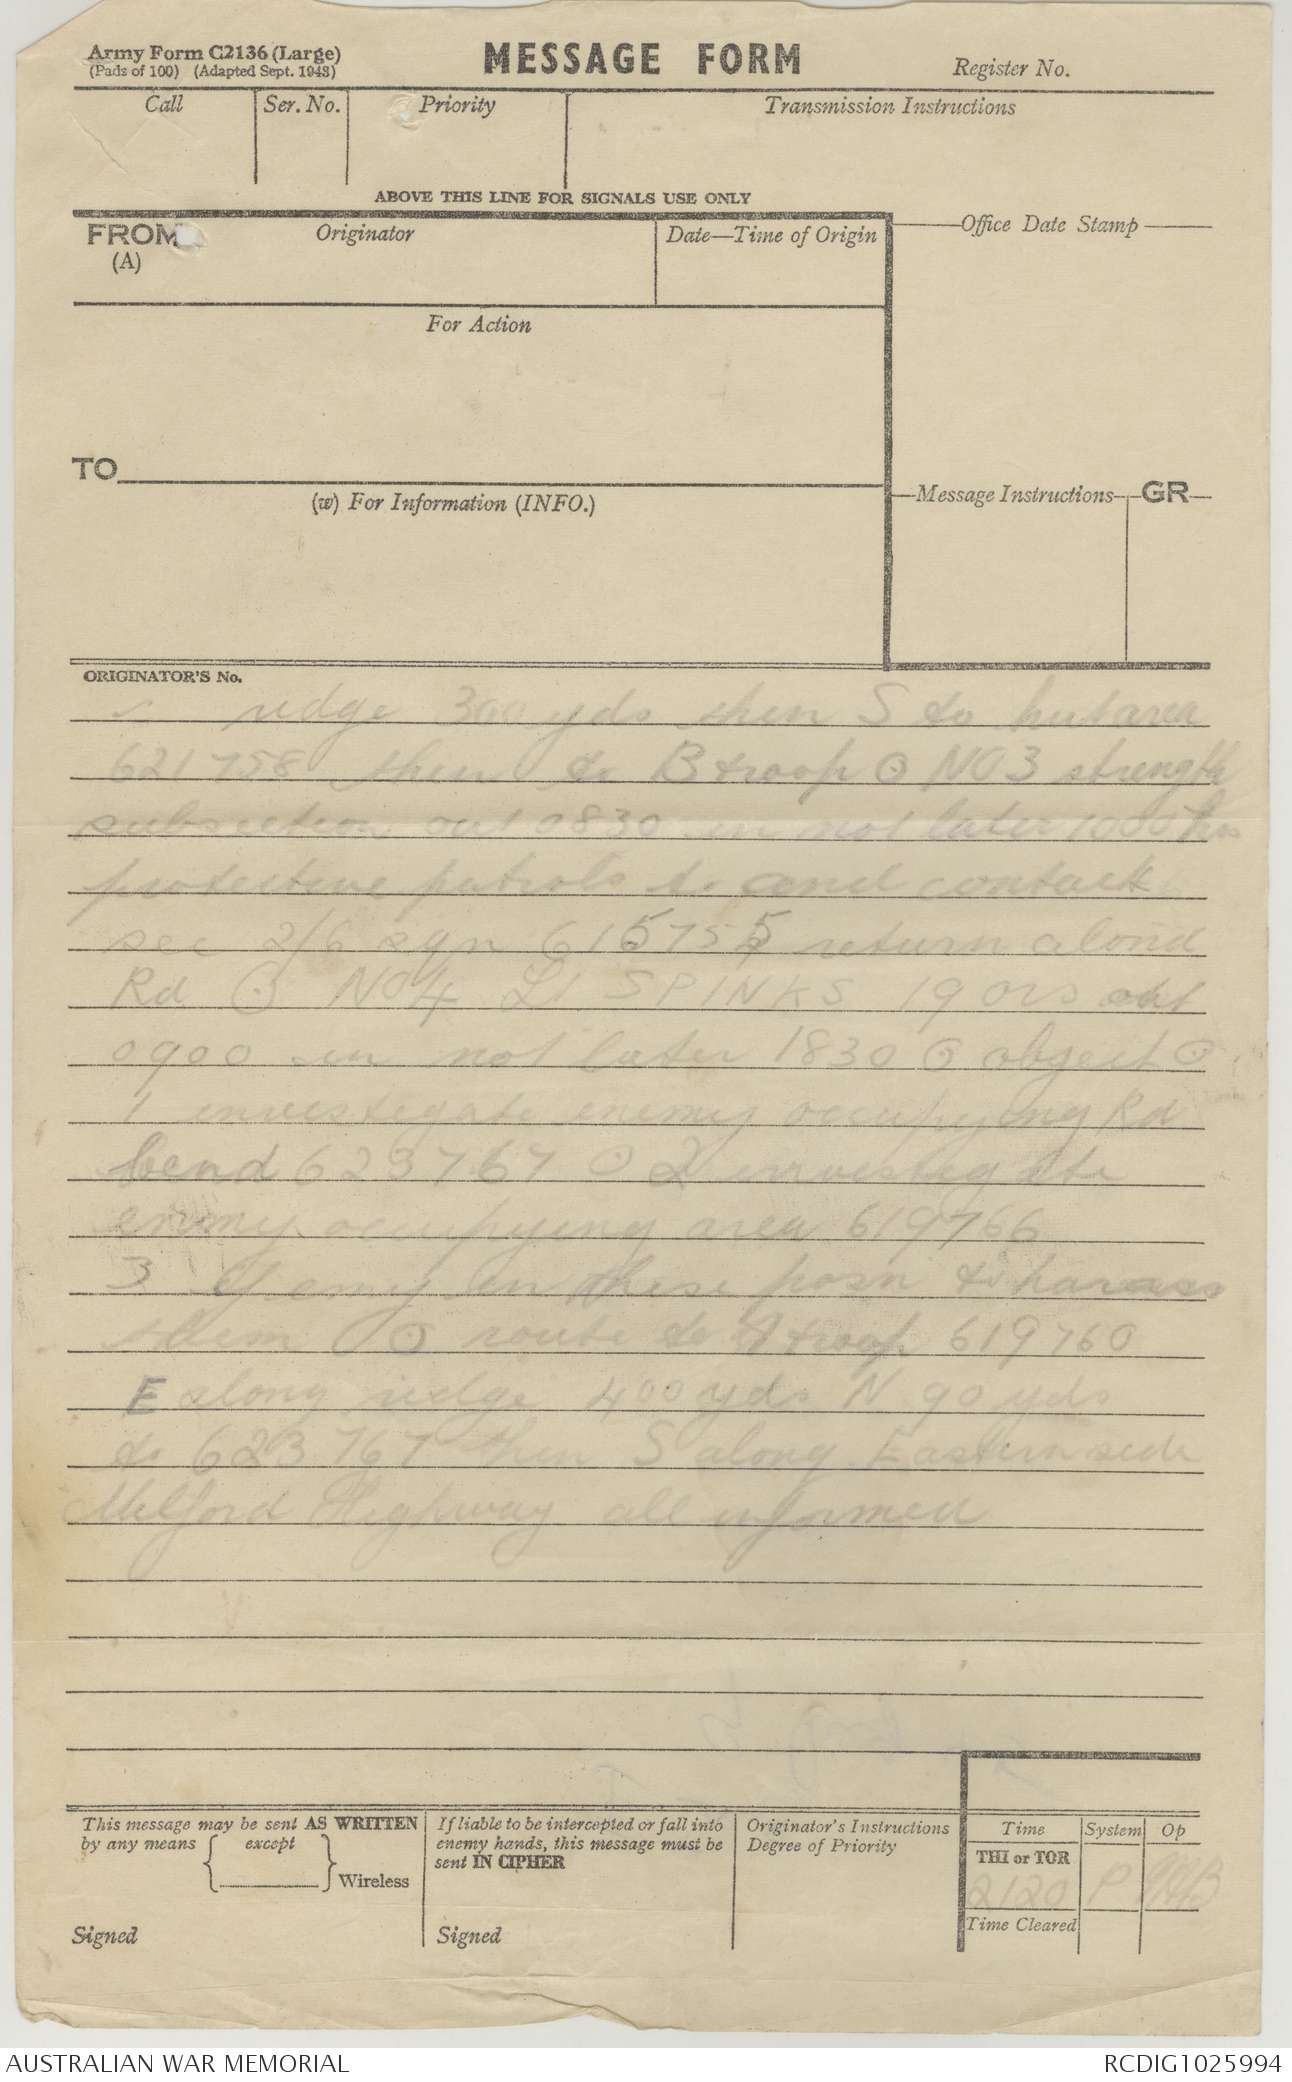 Army Form C2136 (Large)
(Pads of 100) (Adapted Sept. 1943)
MESSAGE FORM
Register No.
Call
Ser. No.
Priority
Transmission Instructions
ABOVE THIS LINE FOR SIGNALS USE ONLY
FROM
(A)
Originator
Date—Time of Origin
Office Date Stamp
For Action
TO
(w) For Information (INFO.)
Message Instructions
GR
ORIGINATOR'S No.
ridge 300 yds then S to hut area
621758 then to B troop ⊙ NO 3 strength
subsection out 0830 in not later 1000 hrs
protective patrols to and contact
sec 2/6 sqn 615755 return alond
Rd ⊙ NO 4 Lt SPINKS 19 ors out
0900 in not later 1830 ⊙ object ⊙
1 investigate enemy occupying Rd
bend 623767 ⊙ 2 investigate
enemy occupying area 619766
3 If emy in these posn to harass
them ⊙ route to A troop 619760
E along ridge 400 yds N 90 yds
to 623767 then S along Eastern side
Milford Highway all informed
This message may be sent AS WRITTEN
by any means { except } Wireless
Signed
If liable to be intercepted or fall into
enemy hands, this message must be
sent IN CIPHER
Signed
Originator's Instructions
Degree of Priority
Time
System
Op
THI or TOR
2120
P
Time Cleared
AUSTRALIAN WAR MEMORIAL
RCDIG1025994